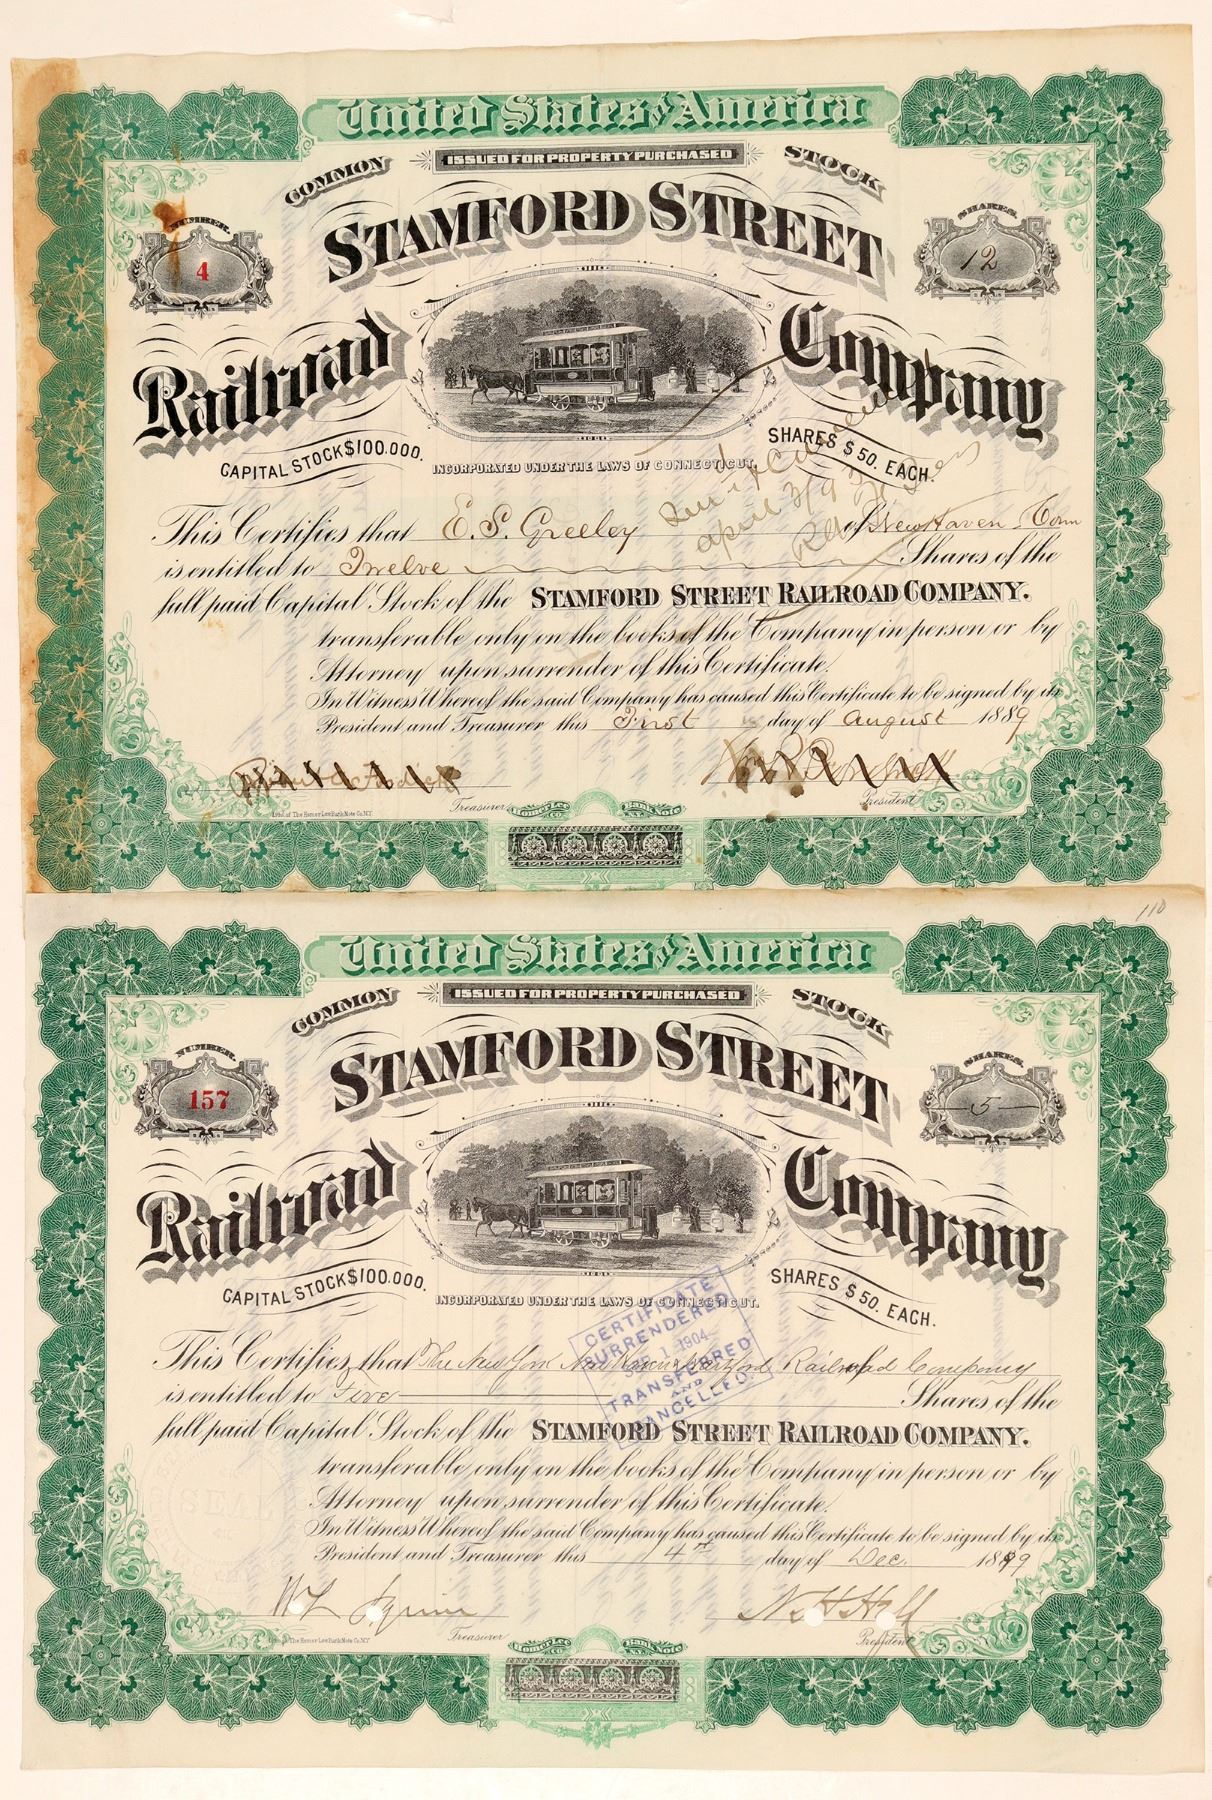 United States of America
COMMON
ISSUED FOR PROPERTY PURCHASED
STOCK
NUMBER.
4
STAMFORD STREET
SHARES.
12
Railroad
Company
CAPITAL STOCK $100.000.
INCORPORATED UNDER THE LAWS OF CONNECTICUT.
SHARES $50. EACH.
This Certifies that E. S. Greeley of New Haven Conn
is entitled to Twelve Shares of the
full paid Capital Stock of the STAMFORD STREET RAILROAD COMPANY.
transferable only on the books of the Company in person or by
Attorney upon surrender of this Certificate.
In Witness Whereof the said Company has caused this Certificate to be signed by its
President and Treasurer this First day of August 1889
april
Treasurer
President
Litho. of The Homer Lee Bank Note Co. N.Y.
Homer Lee Bank Note
110
United States of America
COMMON
ISSUED FOR PROPERTY PURCHASED
STOCK
NUMBER.
157
STAMFORD STREET
SHARES.
5
Railroad
Company
CAPITAL STOCK $100.000.
INCORPORATED UNDER THE LAWS OF CONNECTICUT.
SHARES $50. EACH.
CERTIFICATE
SURRENDERED
1 - 1904
TRANSFERRED
AND
CANCELLED.
This Certifies that The New York New Haven & Hartford Railroad Company
is entitled to Five Shares of the
full paid Capital Stock of the STAMFORD STREET RAILROAD COMPANY.
transferable only on the books of the Company in person or by
Attorney upon surrender of this Certificate.
In Witness Whereof the said Company has caused this Certificate to be signed by its
President and Treasurer this 4th day of Dec. 1899
SEAL
Treasurer
President
Litho. of The Homer Lee Bank Note Co. N.Y.
Homer Lee Bank Note